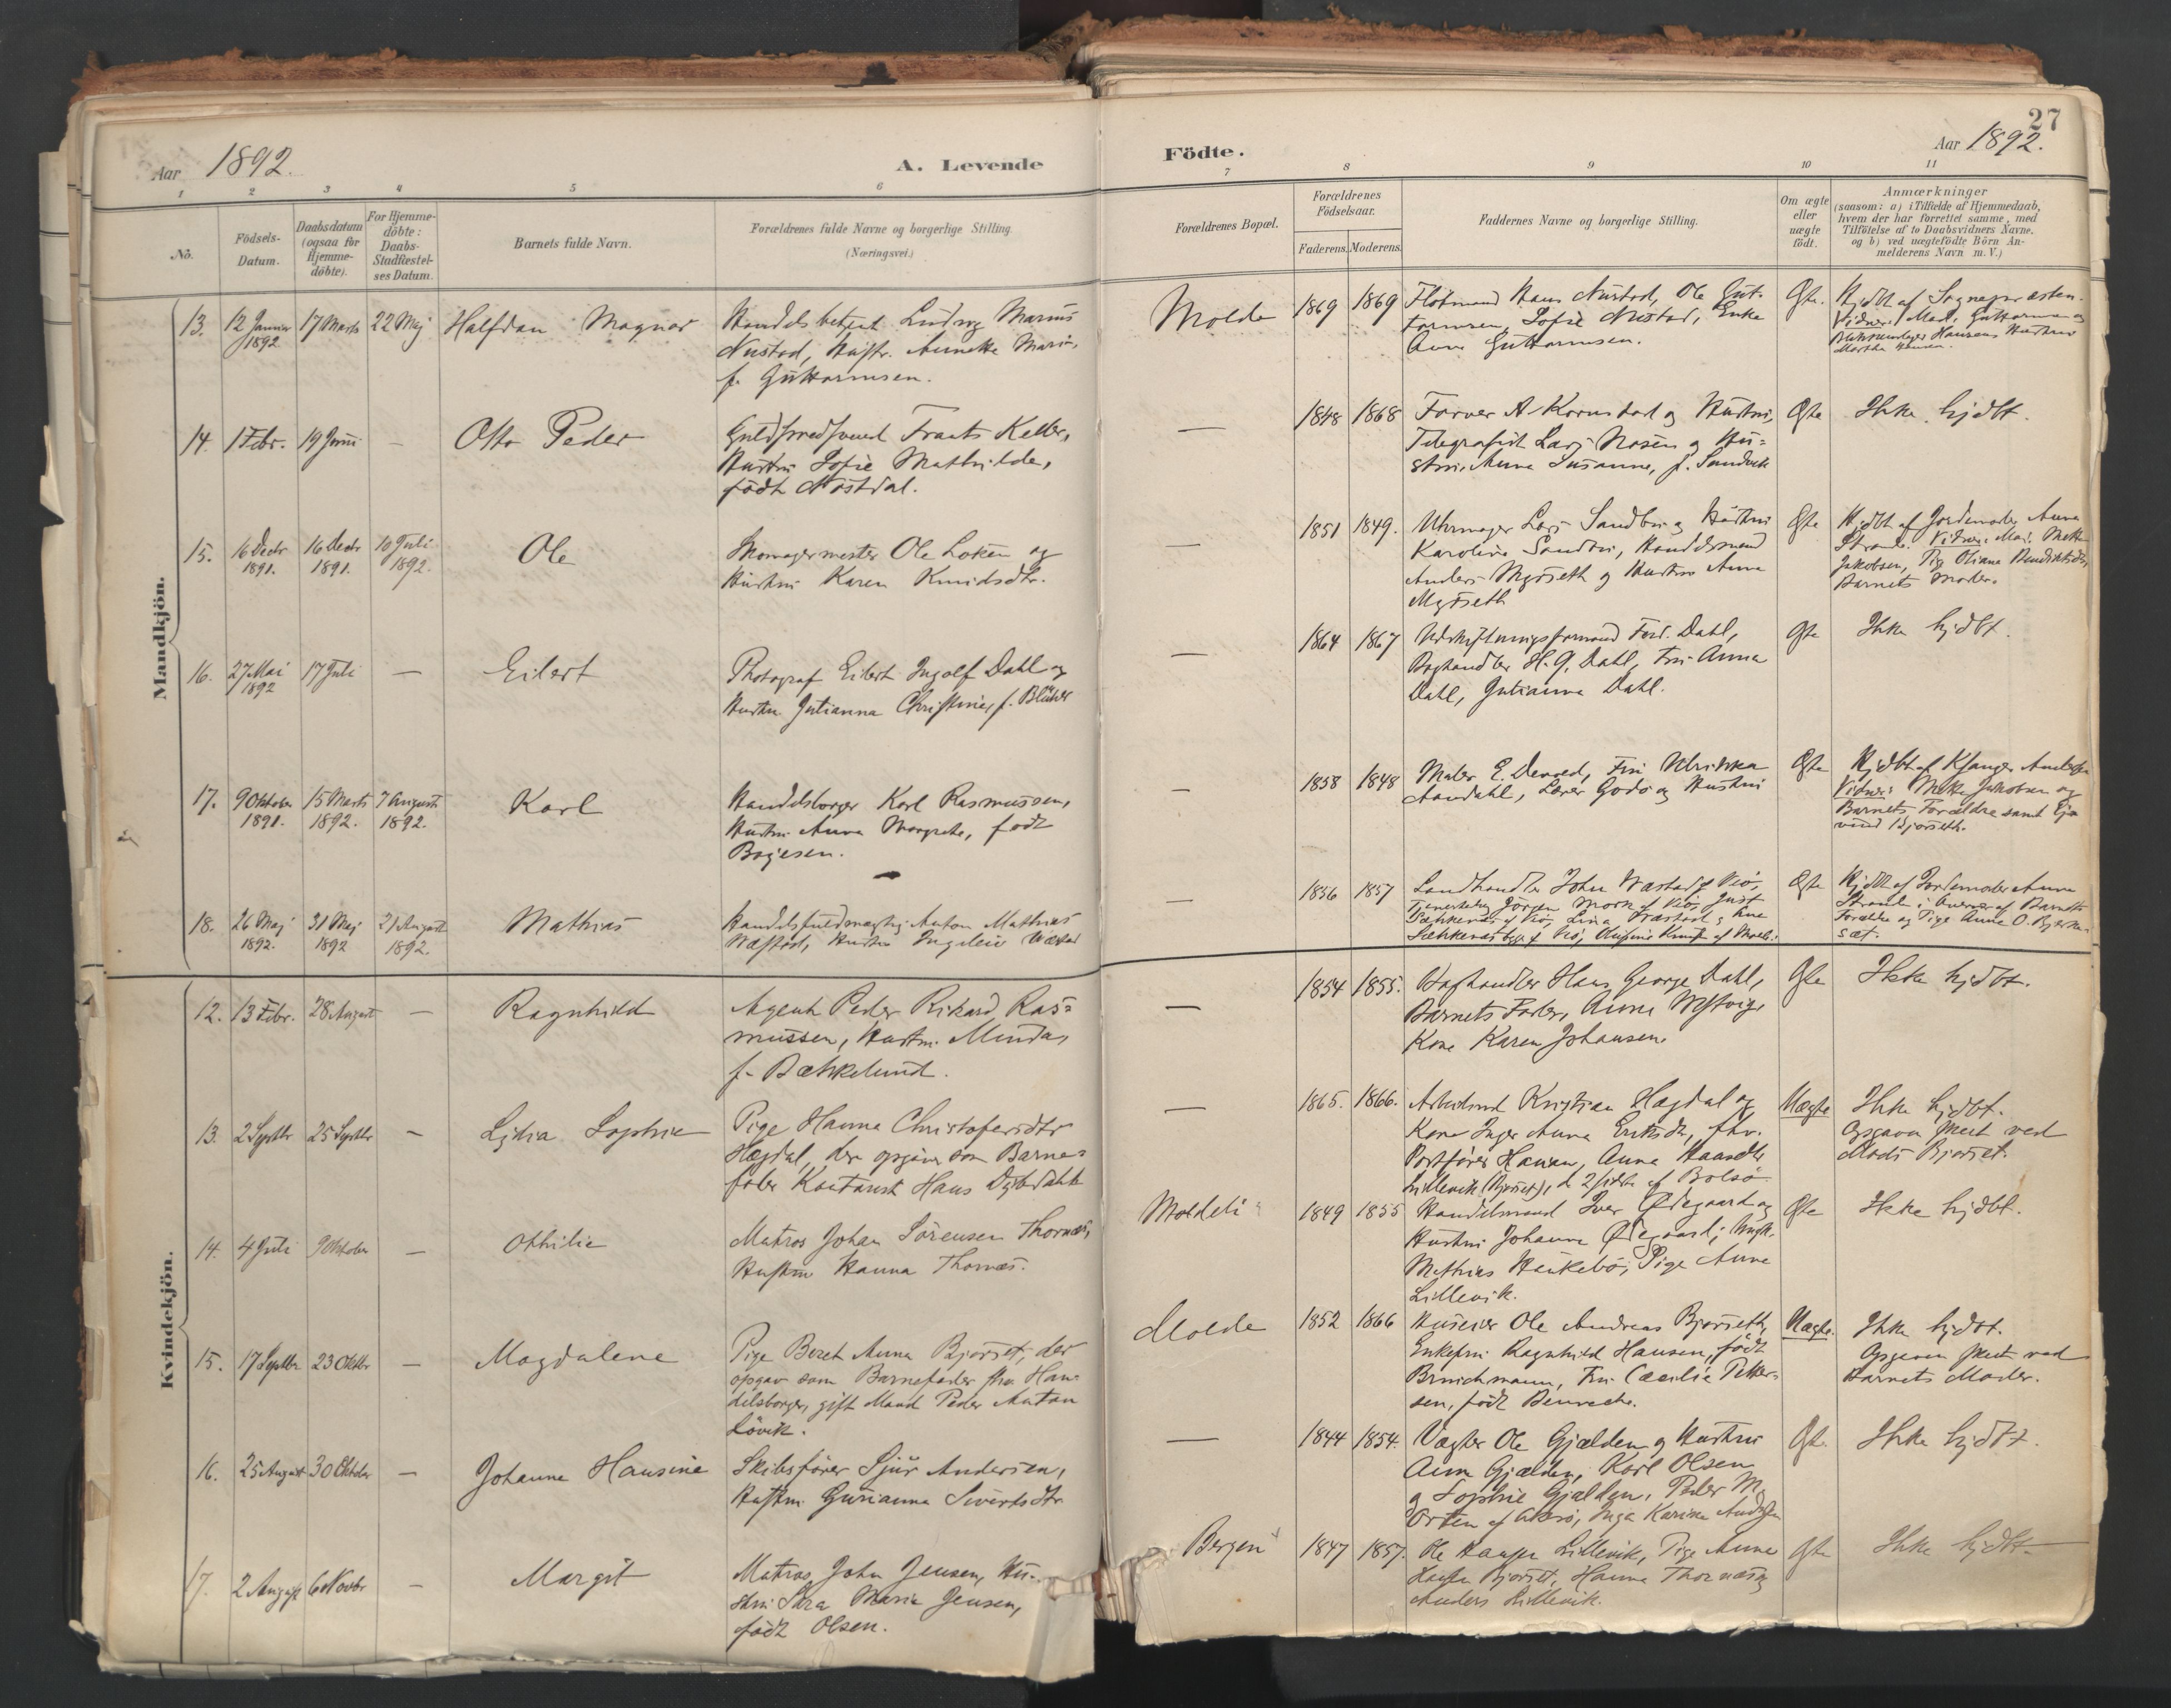 27
Aar 1892. A. Levende Födte. Aar 1892.
1 2 3 4 5 6 7 8 9 10 11
No.
Födsels-Datum.
Daabsdatum (ogsaa for Hjemme-döbte).
For Hjemme-döbte: Daabs-Stadfæstel-ses Datum.
Barnets fulde Navn.
Forældrenes fulde Navne og borgerlige Stilling. (Næringsvei.)
Forældrenes Bopæl.
Forældrenes Födselsaar.
Faderens. Moderens.
Faddernes Navne og borgerlige Stilling.
Om ægte eller uægte födt.
Anmærkninger
(saasom: a) i Tilfælde af Hjemmedaab,
hvem der har forrettet samme, med
Tilföielse af to Daabsvidners Navne,
og b) ved uægtefödte Börn An-
melderens Navn m.V.)
Mandkjön.
13. 12 Januar 1892 17 Marts 22 Maj Halfdan Magnus
Handelsbetjent Ludvig Marius
Nustad, Hustr. Annette Marie,
f. Guttormsen.
Molde 1869 1869
Hans Nustad, Ole Gut-
tormsen, Sofie Nustad, Enke
Anna Guttormsen.
Ægte. Hjdbt af Sognepresten.
Vidner: Mad. Guttormsen og
Hansens Hustru
Martha Hansen.
14. 1 Febr. 19 Juni — Otto Peder
Guldsmedsvend Frants Keller,
Hustru Sofie Mathilde,
födt Nöstdal.
— 1848 1868
Farver A. Kornstad og Hustru,
Telegrafist Lars Nasen og Hu-
stru Anna Susanne, f. Sandvik
Ægte Ikke hjdbt.
15. 16 Decbr 1891. 16 Decbr 1891. 10 Juli 1892. Ole
Skomagermester Ole Loken og
Hustru Karen Knudsdtr.
— 1851 1849.
Uhrmager Lars Sandbu og Hustru
Karoline Sandbu, Handelsmand
Anders Myrseth og Hustru Anna
Myrseth
Ægte Hjdbt af Jordemoder Anna
Strande. Vidner: Mad. Mette
Jakobsen, Pige Oliana Bendiktsdtr,
Barnets Moder.
16. 27 Mai 1892 17 Juli — Eilert
Photograf Eilert Ingolf Dahl og
Hustru Julianna Christine, f. Blücher
— 1864 1867
Udskiftningsformand Ferd. Dahl,
Boghandler H. G. Dahl, Fru Anna
Dahl, Julianna Dahl.
Ægte Ikke hjdbt.
17. 9 Oktober 1891. 15 Marts 1892. 7 August 1892. Karl
Handelsborger Karl Rasmussen,
Hustru Anna Margrete, födt
Bojesen.
— 1858 1848
Maler E. Fru Ulrikka
Aandahl, Lærer Godö og Hustru
Ægte Hjdbt af
Vidner: Mette Jakobsen og
Barnets Forældre samt
18. 26 Maj 1892. 31 Maj 1892 21 August 1892. Mathias
Handelsfuldmægtig Anton Mathias
Wæstad, Hustru Ingeleiv Wæstad
— 1856 1857
Landhandler John Wæstad
Ægte Hjdbt af Jordemoder Anna
Strande i Overvær af Barnets
Forældre og Pige Anne O. Bjerke-
sæt.
Kvindekjön.
12. 13 Febr. 28 August — Ragnhild
Agent Peder Rikard Ras-
mussen, Hustru Minda,
f. Bækkelund.
— 1854 1855.
Boghandler Hans George Dahl,
Barnets Fader, Anna
Kone Karen Johansen.
Ægte Ikke hjdbt.
13. 2 Septbr 25 Septbr — Lydia Sophie
Pige Hanna Christofersdtr
Hagdal, der opgiver som Barne-
fader Kontorist Hans Dybdahl
— 1865. 1866.
Arbeidsmd Kristian Hagdal og
Kone Inger Anna Eriksdtr, fhv.
Postförer Hansen, Anna
Lillevik (Bjorset), de 2 sidste af Bolsö
Uægte Ikke hjdbt.
Opgaven skeet ved
Mads Bjorset.
14. 4 Juli 9 Oktober — Othilie
Matros Johan Sörensen Thornæs,
Hustru Hanna Thornæs.
Moldeli 1849 1855
Handelsmand Iver Ødegaard og
Hustru Johanna Ødegaard,
Mathias Haukebö, Pige Anna
Lillevik.
Ægte Ikke hjdbt.
15. 17 Septbr 23 Oktbr — Magdalene
Pige Beret Anna Bjorset, der
opgav som Barnefader fhv. Han-
delsborger, gift Mand Peder Anton
Lövik.
Molde 1852 1866
Huseier Ole Andreas Bjorseth,
Enkefru Ragnhild Hansen, födt
Brinchmann, Fru Cæcilie Petter-
sen, födt
Uægte. Ikke hjdbt.
Opgaven skeet ved
Barnets Moder.
16. 25 August 30 Oktober — Johanne Hansine
Skibsförer Sjur Andersen,
Hustru Gurianna Sivertsdtr
— 1844 1854.
Vægter Ole Gjælden og Hustru
Anna Gjælden, Karl Olsen
og Sophie Gjælden, Peder M.
Orten af Inga Karine Andersen
Ægte. Ikke hjdbt.
17. 2 August 6 Novbr — Margit
Matros John Jensen, Hu-
stru Sara Marie Jensen,
födt Olsen.
Bergen 1847 1857.
Ole Lillevik, Pige Anna
Bjorset, Hanna Thornæs og
Anders Lillevik.
Ægte Ikke hjdbt.